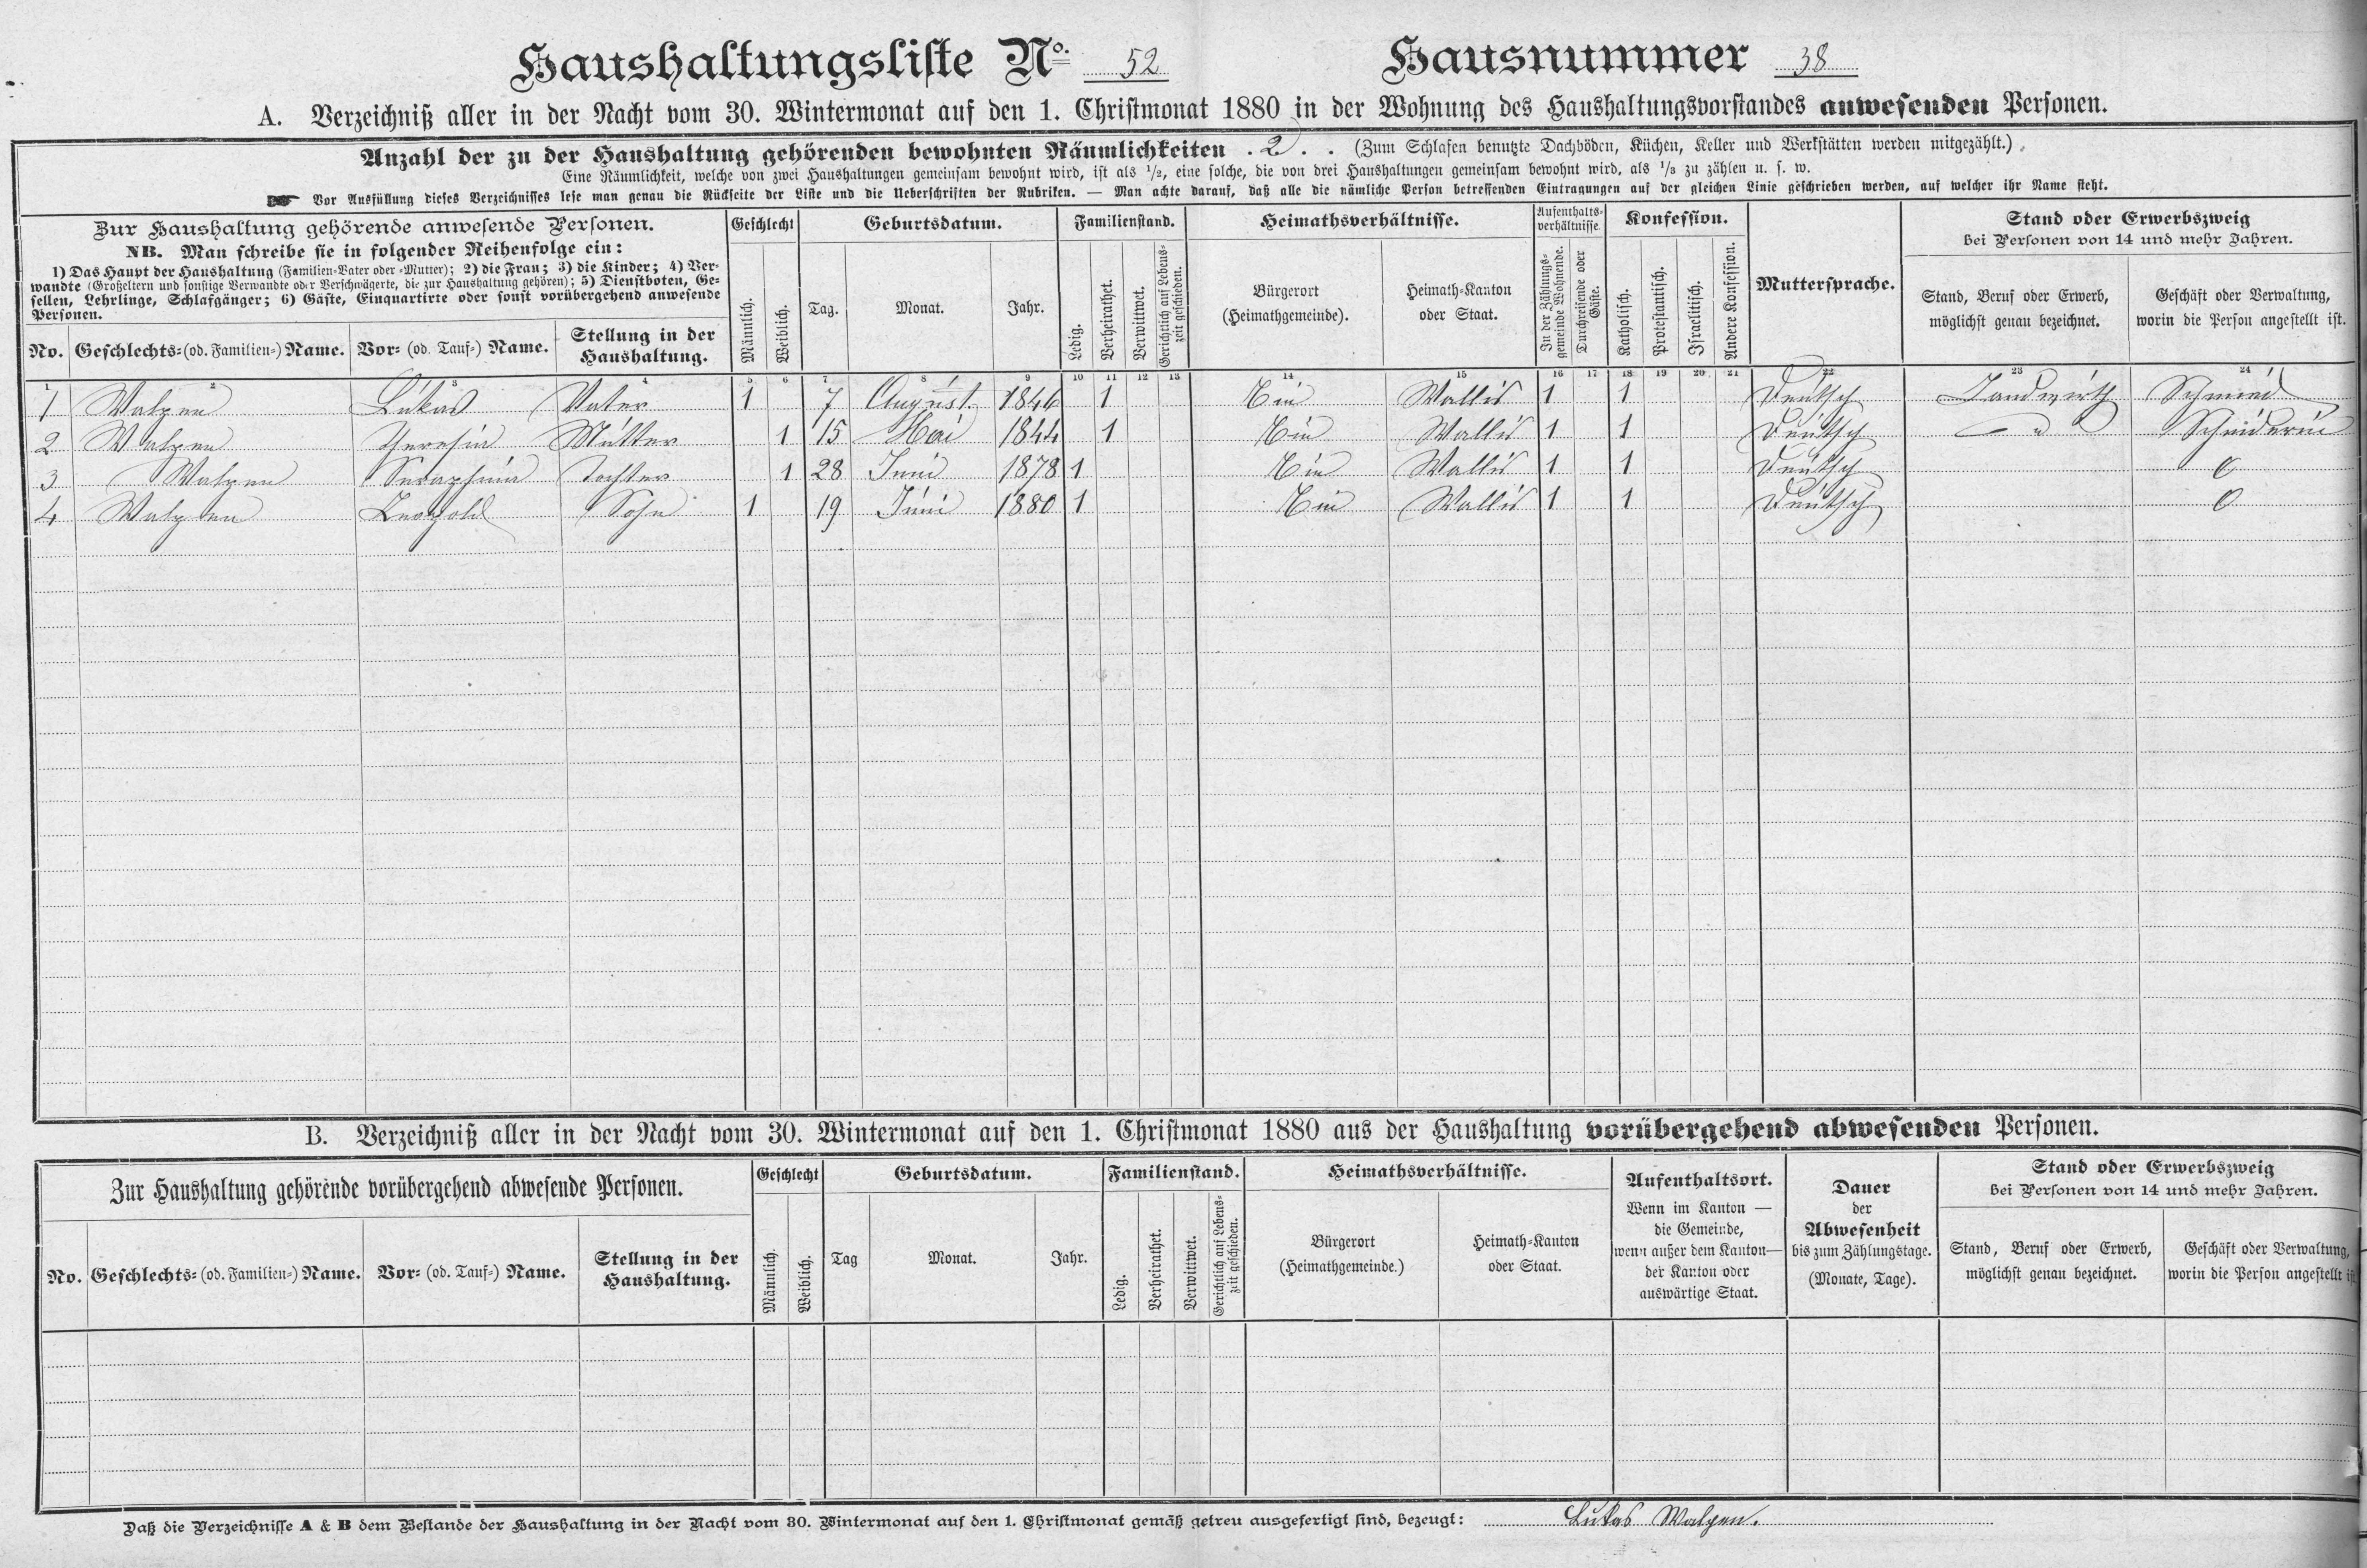 Haushaltungsliste No. 52 Hausnummer 38
A. Verzeichniß aller in der Nacht vom 30. Wintermonat auf den 1. Christmonat 1880 in der Wohnung des Haushaltungsvorstandes anwesenden Personen.
Anzahl der zu der Haushaltung gehörenden bewohnten Räumlichkeiten . 2 . . (Zum Schlafen benutzte Dachböden, Küchen, Keller und Werkstätten werden mitgezählt.)
Eine Räumlichkeit, welche von zwei Haushaltungen gemeinsam bewohnt wird, ist als 1/2, eine solche, die von drei Haushaltungen gemeinsam bewohnt wird, als 1/3 zu zählen u. s. w.
☛ Vor Ausfüllung dieses Verzeichnisses lese man genau die Rückseite der Liste und die Ueberschriften der Rubriken. — Man achte darauf, daß alle die nämliche Person betreffenden Eintragungen auf der gleichen Linie geschrieben werden, auf welcher ihr Name steht.
Zur Haushaltung gehörende anwesende Personen.
NB. Man schreibe sie in folgender Reihenfolge ein:
1) Das Haupt der Haushaltung (Familien-Vater oder -Mutter); 2) die Frau; 3) die Kinder; 4) Ver-
wandte (Großeltern und sonstige Verwandte oder Verschwägerte, die zur Haushaltung gehören); 5) Dienstboten, Ge-
sellen, Lehrlinge, Schlafgänger; 6) Gäste, Einquartirte oder sonst vorübergehend anwesende
Personen.
No. Geschlechts- (od. Familien-) Name. Vor- (od. Tauf-) Name. Stellung in der
Haushaltung.
Geschlecht
Männlich. Weiblich.
Geburtsdatum.
Tag. Monat. Jahr.
Familienstand.
Ledig. Verheirathet. Verwittwet. Gerichtlich auf Lebens-
zeit geschieden.
Heimathsverhältnisse.
Bürgerort
(Heimathgemeinde).
Heimath-Kanton
oder Staat.
Aufenthalts-
verhältnisse.
In der Zählungs-
gemeinde Wohnende.
Durchreisende oder
Gäste.
Konfession.
Katholisch. Protestantisch. Israelitisch. Andere Konfession.
Muttersprache.
Stand oder Erwerbszweig
bei Personen von 14 und mehr Jahren.
Stand, Beruf oder Erwerb,
möglichst genau bezeichnet.
Geschäft oder Verwaltung,
worin die Person angestellt ist.
1 2 3 4 5 6 7 8 9 10 11 12 13 14 15 16 17 18 19 20 21 22 23 24
1 Walpen Lukas Vater 1 7 August. 1846 1 Bin Wallis 1 1 Deutsch Landwirth Schmied
2 Walpen Theresia Mutter 1 15 Mai 1844 1 Bin Wallis 1 1 Deutsch — " Schniderin
3 Walpen Seraphina Tochter 1 28 Juni 1878 1 Bin Wallis 1 1 Deutsch 0
4 Walpen Leopold Sohn 1 19 Juni 1880 1 Bin Wallis 1 1 Deutsch 0
B. Verzeichniß aller in der Nacht vom 30. Wintermonat auf den 1. Christmonat 1880 aus der Haushaltung vorübergehend abwesenden Personen.
Zur Haushaltung gehörende vorübergehend abwesende Personen.
No. Geschlechts- (od. Familien-) Name. Vor- (od. Tauf-) Name. Stellung in der
Haushaltung.
Geschlecht
Männlich. Weiblich.
Geburtsdatum.
Tag Monat. Jahr.
Familienstand.
Ledig. Verheirathet. Verwittwet. Gerichtlich auf Lebens-
zeit geschieden.
Heimathsverhältnisse.
Bürgerort
(Heimathgemeinde.)
Heimath-Kanton
oder Staat.
Aufenthaltsort.
Wenn im Kanton —
die Gemeinde,
wenn außer dem Kanton—
der Kanton oder
auswärtige Staat.
Dauer
der
Abwesenheit
bis zum Zählungstage.
(Monate, Tage).
Stand oder Erwerbszweig
bei Personen von 14 und mehr Jahren.
Stand, Beruf oder Erwerb,
möglichst genau bezeichnet.
Geschäft oder Verwaltung,
worin die Person angestellt ist
Daß die Verzeichnisse A & B dem Bestande der Haushaltung in der Nacht vom 30. Wintermonat auf den 1. Christmonat gemäß getreu ausgefertigt sind, bezeugt: Lukas Walpen.